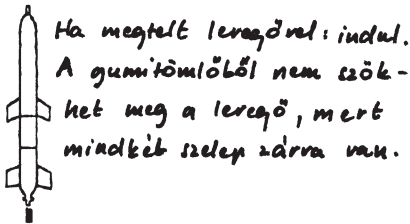 Ha megtelt levegővel: indul.
A gumitömlőből nem szök-
het meg a levegő, mert
mindkét szelep zárva van.